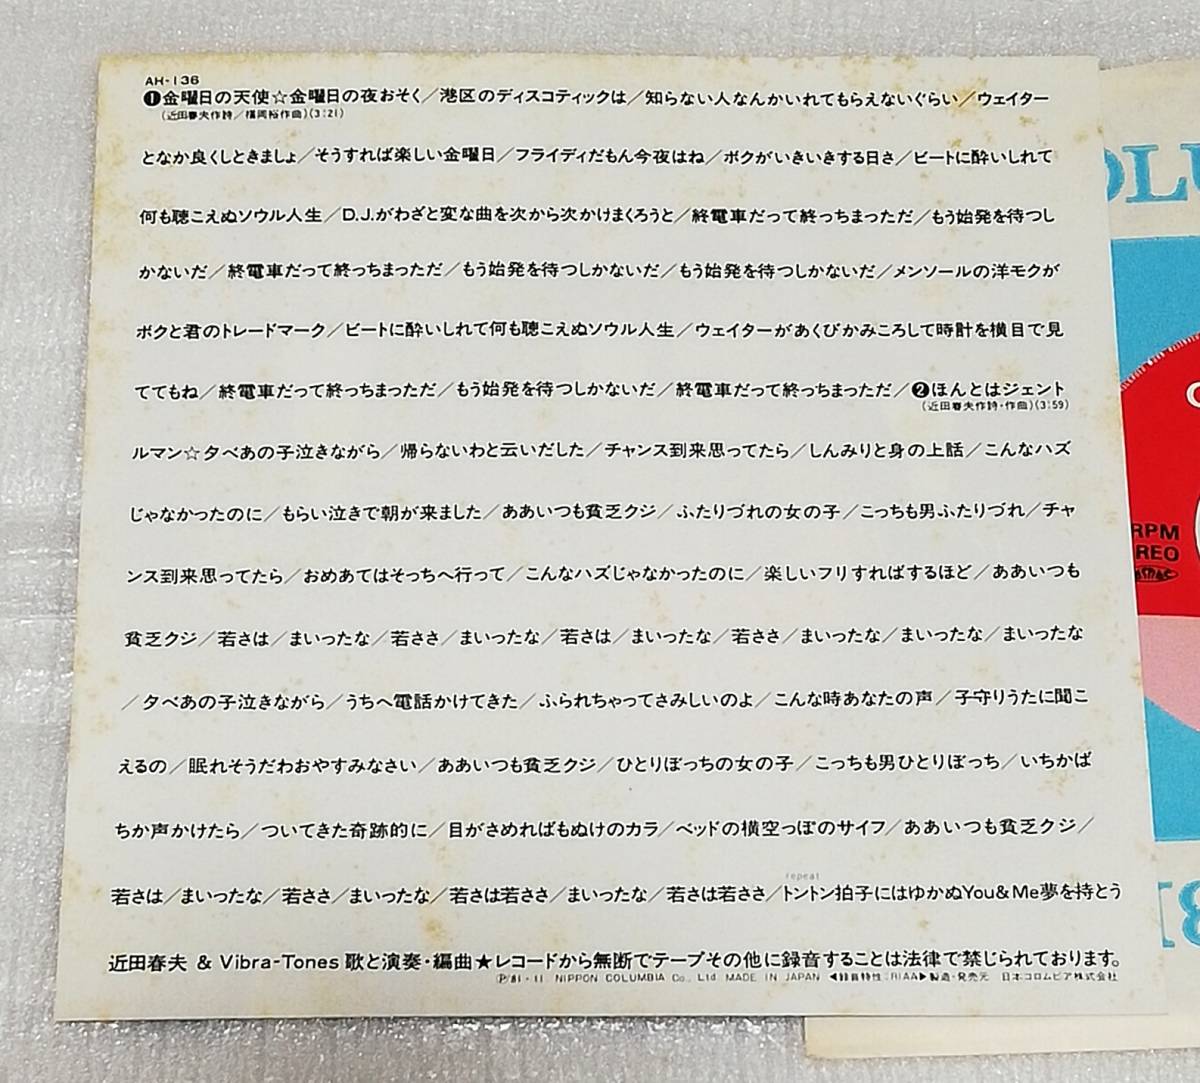 AH-136
❶金曜日の天使☆金曜日の夜おそく／港区のディスコティックは／知らない人なんかいれてもらえないぐらい／ウェイター
(近田春夫作詩／福岡裕作曲)(3:21)
となか良くしときましょ／そうすれば楽しい金曜日／フライディだもん今夜はね／ボクがいきいきする日さ／ビートに酔いしれて
何も聴こえぬソウル人生／D.J.がわざと変な曲を次から次かけまくろうと／終電車だって終っちまっただ／もう始発を待つし
かないだ／終電車だって終っちまっただ／もう始発を待つしかないだ／もう始発を待つしかないだ／メンソールの洋モクが
ボクと君のトレードマーク／ビートに酔いしれて何も聴こえぬソウル人生／ウェイターがあくびかみころして時計を横目で見
ててもね／終電車だって終っちまっただ／もう始発を待つしかないだ／終電車だって終っちまっただ／❷ほんとはジェント
(近田春夫作詩・作曲)(3:59)
ルマン☆夕べあの子泣きながら／帰らないわと云いだした／チャンス到来思ってたら／しんみりと身の上話／こんなハズ
じゃなかったのに／もらい泣きで朝が来ました／ああいつも貧乏クジ／ふたりづれの女の子／こっちも男ふたりづれ／チャ
ンス到来思ってたら／おめあてはそっちへ行って／こんなハズじゃなかったのに／楽しいフリすればするほど／ああいつも
貧乏クジ／若さは／まいったな／若ささ／まいったな／若さは／まいったな／若ささ／まいったな／まいったな／まいったな
／夕べあの子泣きながら／うちへ電話かけてきた／ふられちゃってさみしいのよ／こんな時あなたの声／子守りうたに聞こ
えるの／眠れそうだわおやすみなさい／ああいつも貧乏クジ／ひとりぼっちの女の子／こっちも男ひとりぼっち／いちかば
ちか声かけたら／ついてきた奇跡的に／目がさめればもぬけのカラ／ベッドの横空っぽのサイフ／ああいつも貧乏クジ／
若さは／まいったな／若ささ／まいったな／若さは若ささ／まいったな／若さは若ささ／トントン拍子にはゆかぬYou&Me夢を持とう
repeat
近田春夫 & Vibra-Tones 歌と演奏・編曲★レコードから無断でテープその他に録音することは法律で禁じられております。
Ⓟ'81・11 NIPPON COLUMBIA Co., Ltd. MADE IN JAPAN ◀録音特性:RIAA▶製造・発売元 日本コロムビア株式会社
OLU
RPM
REO